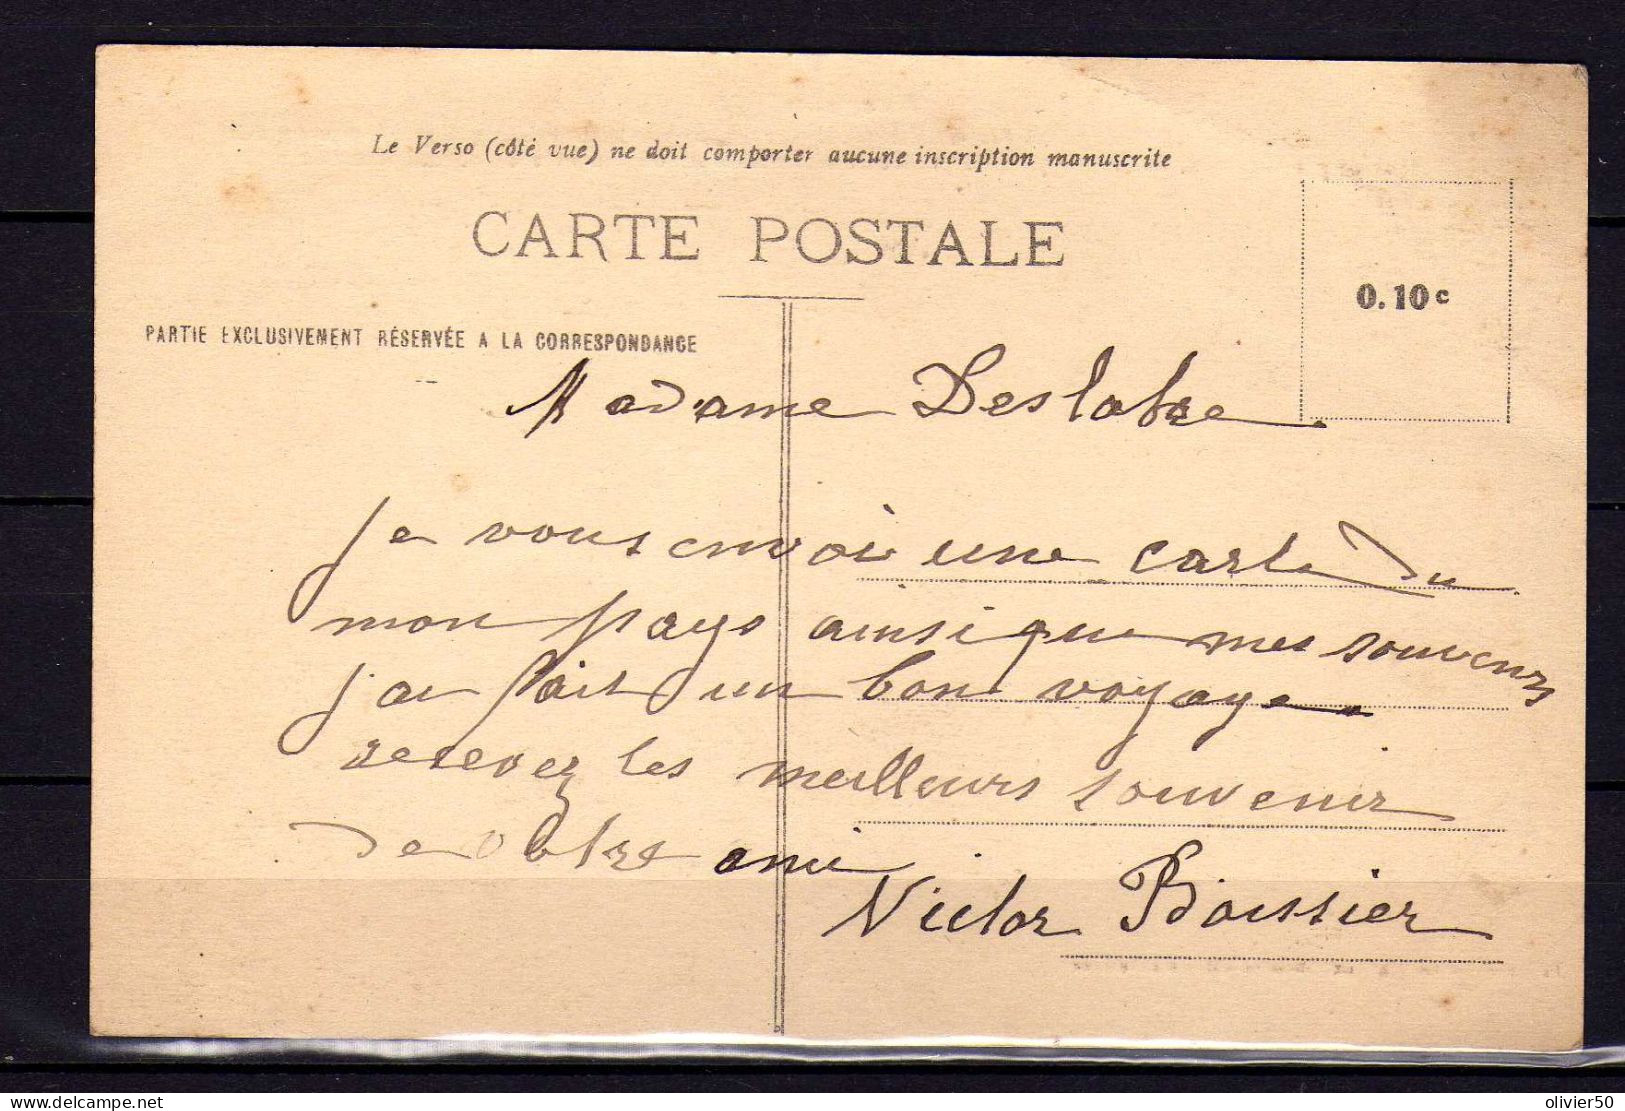 Le Verso (côté vue) ne doit comporter aucune inscription manuscrite
CARTE POSTALE
0.10 c
PARTIE EXCLUSIVEMENT RÉSERVÉE A LA CORRESPONDANCE
Madame Deslabre
je vous envoie une carte du
mon pays ainsi que mes souvenirs
j'ai fait un bon voyage.
recevez les meilleurs souvenir
de votre ami
Victor Boissier
delcampe.net
olivier50